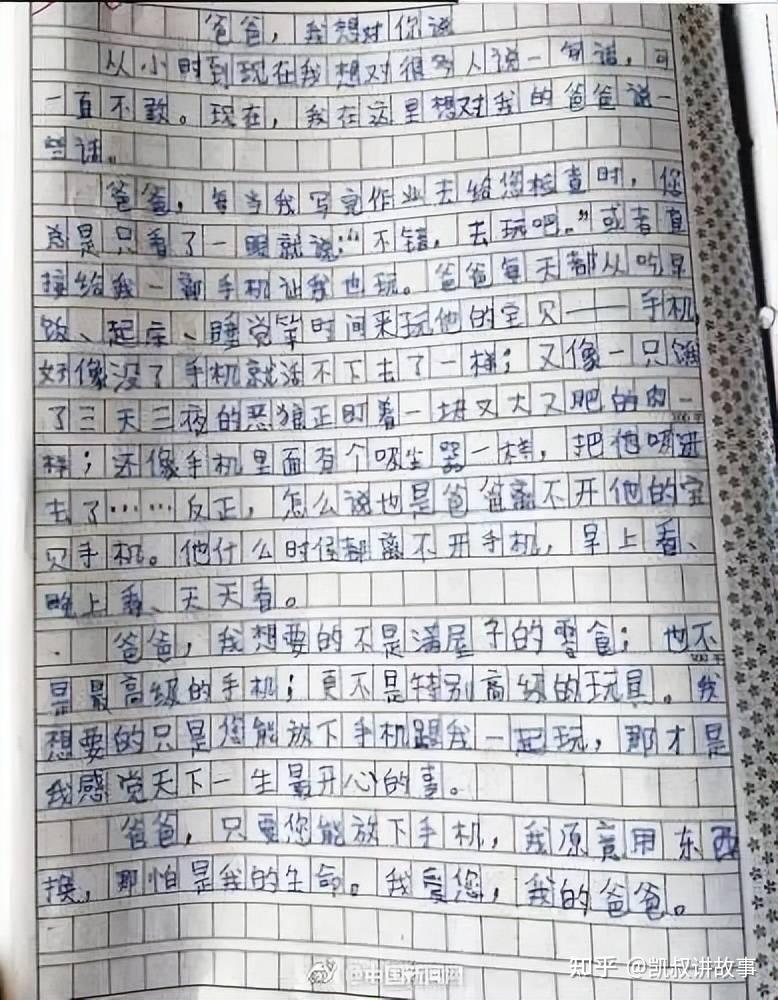 爸爸，我想对你说
从小时到现在我想对很多人说一句话，可
一直不敢。现在，我在这里想对我的爸爸说一
些话。
爸爸，每当我写完作业去给您检查时，您
总是只看了一眼就说：“不错，去玩吧。”或者直
接给我一部手机让我也玩。爸爸每天都从吃早
饭、起床、睡觉等时间来玩他的宝贝——手机
好像没了手机就活不下去了一样；又像一只饿
了三天三夜的恶狼正盯着一块又大又肥的肉一
样；还像手机里面有个吸尘器一样，把他吸进
去了……反正，怎么说也是爸爸离不开他的宝
贝手机。他什么时候都离不开手机，早上看、
晚上看、天天看。
爸爸，我想要的不是满屋子的零食；也不
是最高级的手机；更不是特别高级的玩具。我
想要的只是您能放下手机跟我一起玩，那才是
我感觉天下一生最开心的事。
爸爸，只要您能放下手机，我原意用东西
换，那怕是我的生命。我爱您，我的爸爸。
@中国新闻网
知乎 @凯叔讲故事